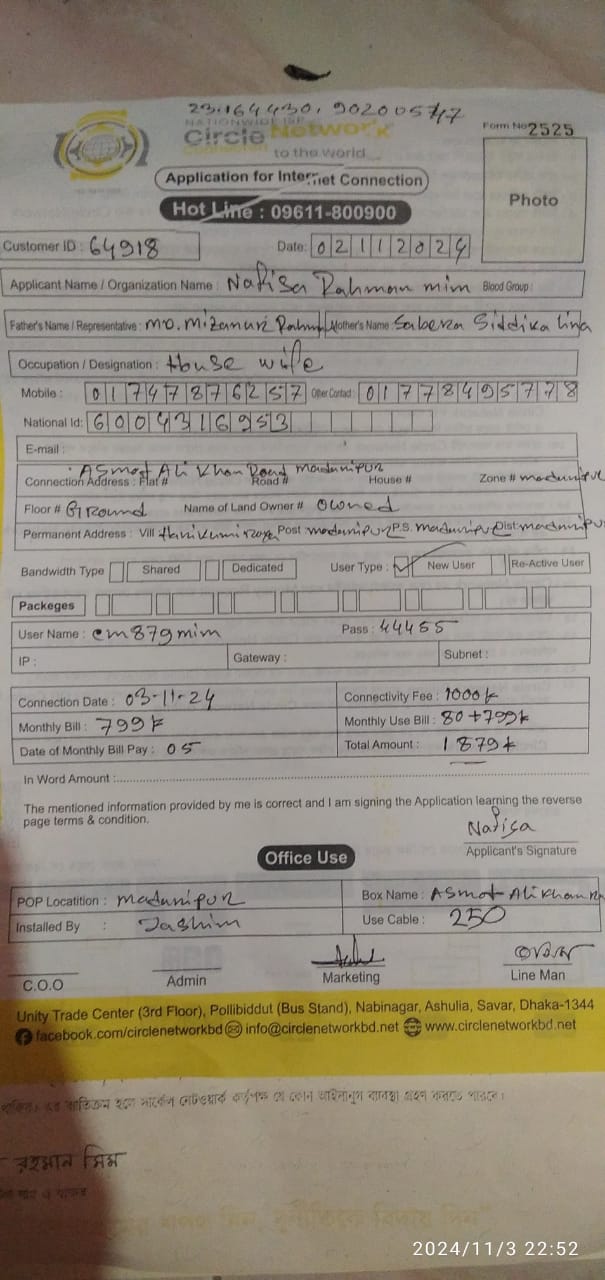 23.164430, 90200577
NATIONWIDE ISP
Circle Network
Connection to the World
Form No 2525
Application for Internet Connection
Photo
Hot Line : 09611-800900
Customer ID : 64918 Date: 02112024
Applicant Name / Organization Name : Nafisa Rahman mim Blood Group :
Father's Name / Representative : MD. Mizanur Rahm Mother's Name : Sabera Siddika Lina
Occupation / Designation : House wife
Mobile : 01747876257 Other Contact : 01778495778
National Id: 6004316953
E-mail :
Asmot Ali Khan Road madaripur
Connection Address : Flat # Road # House # Zone # madaripur
Floor # Ground Name of Land Owner # Owned
Permanent Address : Vill Post madaripur P.S. madaripur Dist madaripur
Bandwidth Type Shared Dedicated User Type : ✓ New User Re-Active User
Packeges
User Name : cm879mim Pass : 44455
IP : Gateway : Subnet :
Connection Date : 03-11-24 Connectivity Fee : 1000k
Monthly Bill : 799k Monthly Use Bill : 80+799k
Date of Monthly Bill Pay : 05 Total Amount : 1879k
In Word Amount :
The mentioned information provided by me is correct and I am signing the Application learning the reverse
page terms & condition.
Nafisa
Applicant's Signature
Office Use
POP Locatition : Madaripur Box Name : Asmot Ali Khan Rd
Installed By : Jashim Use Cable : 250
C.O.O Admin Marketing Line Man
Unity Trade Center (3rd Floor), Pollibiddut (Bus Stand), Nabinagar, Ashulia, Savar, Dhaka-1344
facebook.com/circlenetworkbd info@circlenetworkbd.net www.circlenetworkbd.net
ব্যতিক্রম হলে সার্কেল নেটওয়ার্ক কর্তৃপক্ষ যে কোন আইনানুগ ব্যবস্থা গ্রহণ করতে পারবে।
রহমান মিম
2024/11/3 22:52